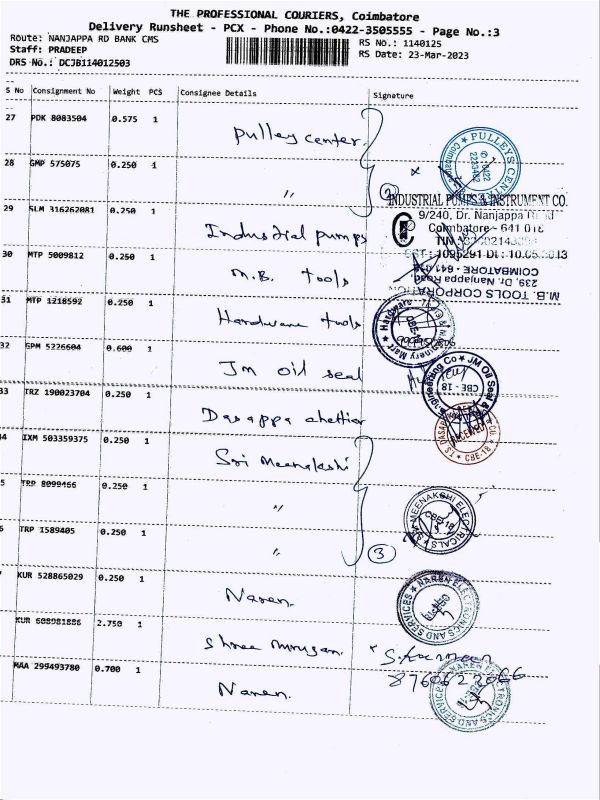 THE PROFESSIONAL COURIERS, Coimbatore
Delivery Runsheet - PCX - Phone No.:0422-3505555 - Page No.:3
Route: NANJAPPA RD BANK CMS
RS No.: 1140125
Staff: PRADEEP
RS Date: 23-Mar-2023
DRS No.: DCJB114012503
S No Consignment No Weight PCS Consignee Details Signature
27 PDK 8083504 0.575 1 Pulley center
PULLEYS CENT
28 GMP 575075 0.250 1 〃
2
INDUSTRIAL PUMPS & INSTRUMENT CO.
29 SLM 316262081 0.250 1 Industrial pumps
9/240, Dr. Nanjappa
Coimbatore - 641 018
30 MTP 5009812 0.250 1 M.B. tools
COIMBATORE - 641
239, Dr. Nanjappa Road,
M.B. TOOLS CORPORATION
31 MTP 1218592 0.250 1 Hardware tools
Hardware
Machinery Mart
32 GPM 5226604 0.600 1 Jm oil seal
JM Oil Seal &
Engineering Co
CBE - 18
33 TRZ 190023704 0.250 1 Dasappa chettiar
T.S. DASAPPA
RECEIVED
CBE-18
34 IXM 503359375 0.250 1 Sri Meenakshi
5 TRP 8099466 0.250 1 〃
MEENAKSHI ELECTRICALS
CBE-18
6 TRP 1589405 0.250 1 〃
3
KUR 528865029 0.250 1 Naren.
NAREN ELECTRONICS AND SERVICES
KUR 608981886 2.750 1 Shree murugan.
MAA 299493780 0.700 1 Naren.
NAREN ELECTRONICS AND SERVICES